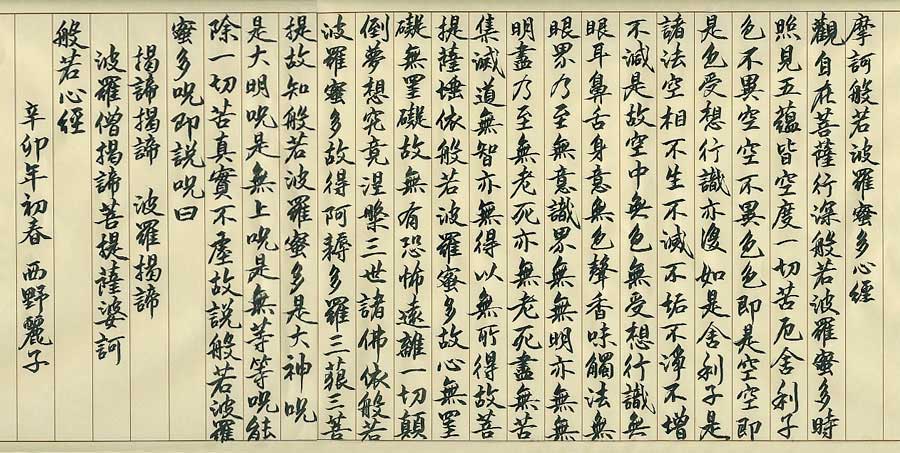 摩訶般若波羅蜜多心經
觀自在菩薩行深般若波羅蜜多時
照見五蘊皆空度一切苦厄舍利子
色不異空空不異色色即是空空即
是色受想行識亦復如是舍利子是
諸法空相不生不滅不垢不淨不增
不減是故空中無色無受想行識無
眼耳鼻舌身意無色聲香味觸法無
眼界乃至無意識界無無明亦無無
明盡乃至無老死亦無老死盡無苦
集滅道無智亦無得以無所得故菩
提薩埵依般若波羅蜜多故心無罣
礙無罣礙故無有恐怖遠離一切顛
倒夢想究竟涅槃三世諸佛依般若
波羅蜜多故得阿耨多羅三藐三菩
提故知般若波羅蜜多是大神呪
是大明呪是無上呪是無等等呪能
除一切苦真實不虛故說般若波羅
蜜多呪即說呪曰
揭諦揭諦 波羅揭諦
波羅僧揭諦菩提薩婆訶
般若心經
辛卯年初春 西野麗子